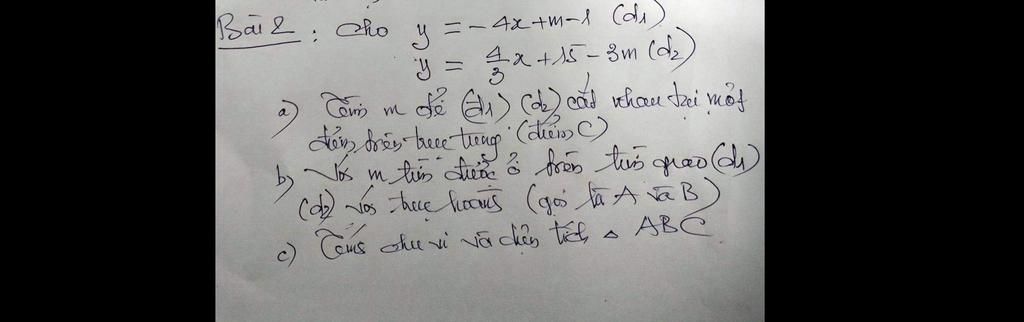 Bài 2 : Cho y = -4x+m-1 (d1)
y = 4/3 x + 15 - 3m (d2)
a) Tìm m để (d1) (d2) cắt nhau tại một
điểm trên trục tung (điểm C)
b) Với m tìm được ở trên tìm giao (d1)
(d2) với trục hoành (gọi là A và B)
c) Tính chu vi và diện tích Δ ABC